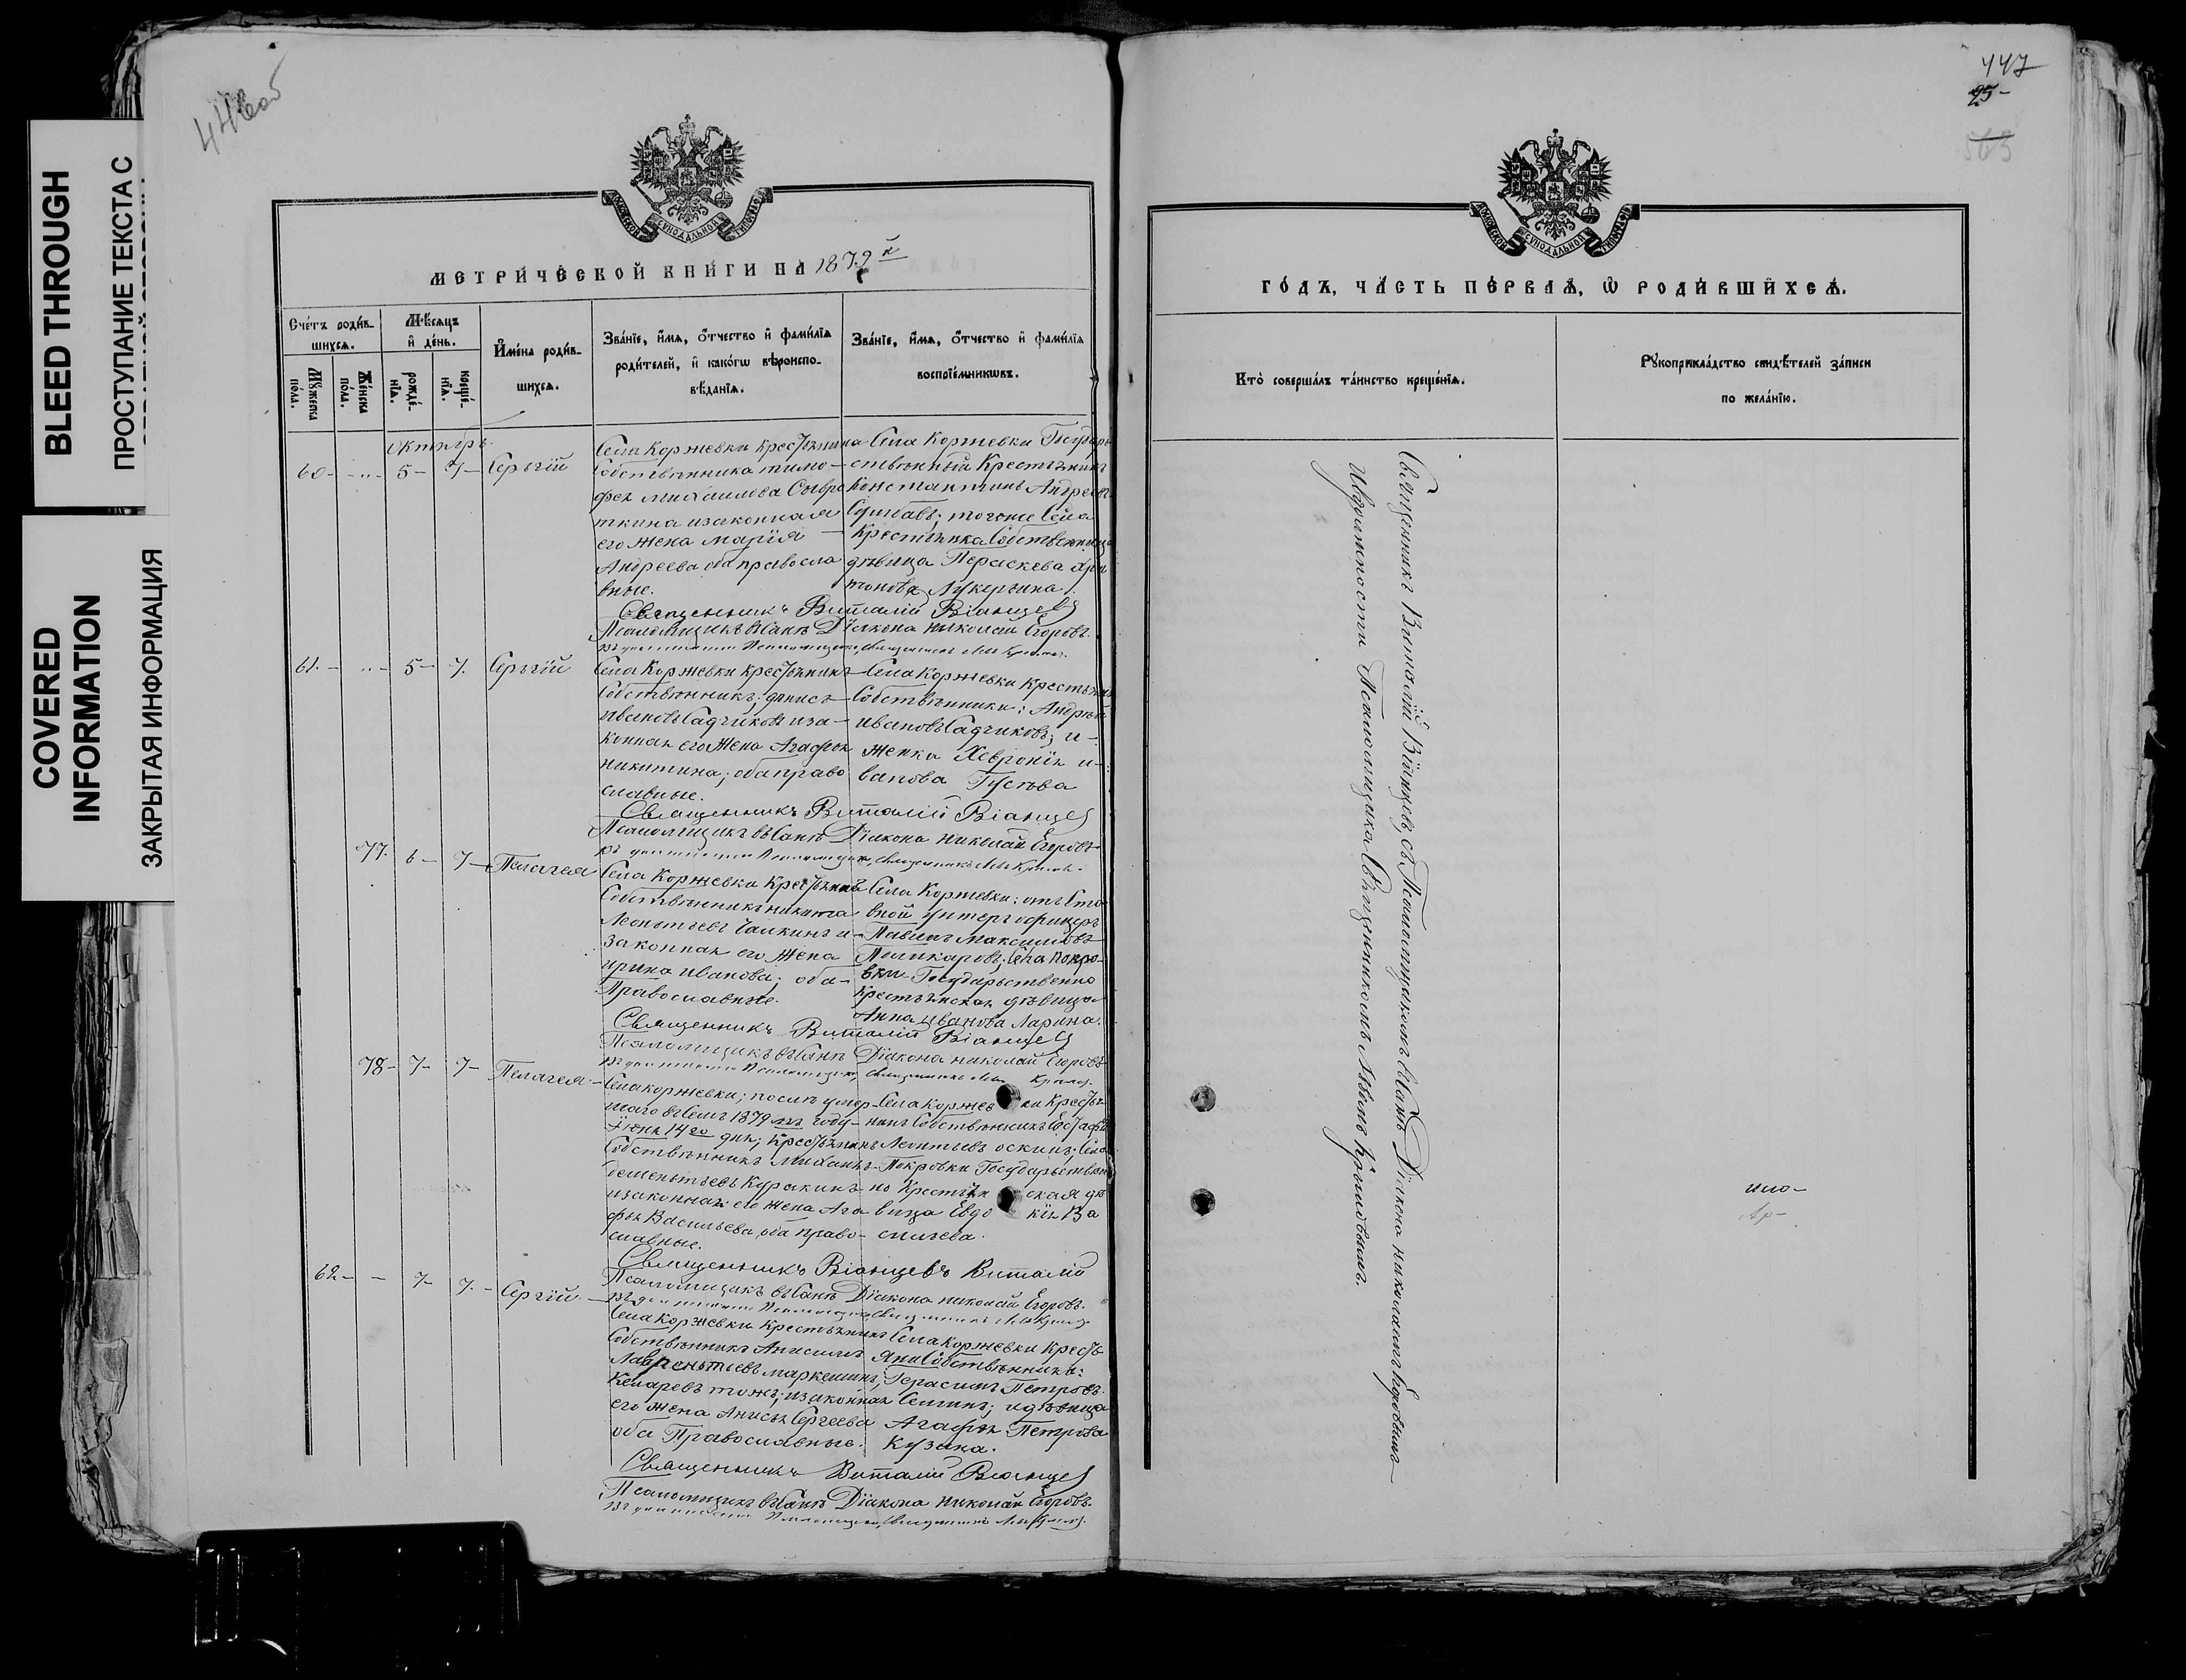 BLEED THROUGH
ПРОСТУПАНИЕ ТЕКСТА С
COVERED
INFORMATION
ЗАКРЫТАЯ ИНФОРМАЦИЯ
446об
МОСКОВСКОЙ СУНОДАЛЬНОЙ ТИПОГРАФІИ
МЕТРИЧЕСКОЙ КНИГИ НА 1879й
Счетъ родив-
шихся.
Мѣсяцъ
и день.
Имена родив-
шихся.
Званіе, имя, отчество и фамилія
родителей, и какогѡ вѣроиспо-
вѣданія.
Званіе, имя, отчество и фамилія
воспріемникѡвъ.
Мужеска
пола.
Женска
пола.
рожде-
нія.
креще-
нія.
Октябрь
60 - „ - 5 - 7 - Сергій
Села Коржевки Крестьянина
Собственника Тимо-
фея Михаилова Сывро
ткина изаконная
его жена Марія
Андреева оба правосла
вные.
Села Коржевки Государ
ственный Крестьянинъ
Константинъ Андреевъ
тогоже Села
Крестьянка Собственница
дѣвица Пераскева
Священникъ Виталій Віанцевъ
Псаломщикъ въ Санѣ Діакона Николай Егоровъ
61. - „ - 5 - 7. Сергій
Села Коржевки Крестьянинъ
Собственникъ: Денисъ
Ивановъ Садчиковъ иза-
конная его Жена Агафья
Никитина; оба право
славные.
Села Коржевки Крестьяни
Собственники: Андрей
Ивановъ Садчиковъ; и-
женка Хевронія и-
ванова Гусева
Священникъ Виталій Віанцевъ
Псаломщикъ въ Санѣ Діакона Николай Егоровъ
77. 6 - 7 - Пелагея
Села Коржевки Крестьянинъ
Собственникъ Никита
Леонтьевъ Чалкинъ и
законная его Жена
Ирина Иванова; оба-
Православные.
Села Коржевки: отъ Ста
вной Унтеръ офицеръ
Павелъ Максимовъ
Поликаровъ; Села Покро-
вки Государственно
Крестьянская дѣвица
Анна Иванова Ларина.
Священникъ Виталій Віанцевъ
Псаломщикъ въ Санѣ Діакона Николай Егоровъ
78 - 7 - 7 - Пелагея
Села Коржевки; послѣ умер-
шаго въ Семъ 1879 мъ году
Іюня 14го дня; Крестьянинъ
Собственникъ Михаилъ
Дементьевъ Куракинъ
изаконная его жена Ага
фья Васильева, оба право-
славные.
Села Коржевки Крестья
нинъ Собственникъ Евстафій
Леонтьевъ Оскинъ; Села
Покровки Государствен
но Крестьянская дѣ
вица Евдокія Ва
Священникъ Віанцевъ Виталій
Псаломщикъ въ Санѣ Діакона Николай Егоровъ.
62 - - 7 - 7. - Сергій
Села Коржевки Крестьянинъ
Собственникъ Анисимъ
Лаврентьевъ Маркешинъ,
Кемаревъ тожъ; изаконная
его жена Анисья Сергеева
оба Православные.
Села Коржевки Кресть
яни Собственники:
Герасимъ Петровъ
Семинъ; идѣвица
Агафья Петрова
Кузина.
Священникъ Виталій Віанцевъ
Псаломщикъ въ Санѣ Діакона Николай Егоровъ.
447
25-
563
МОСКОВСКОЙ СУНОДАЛЬНОЙ ТИПОГРАФІИ
ГОДЪ, ЧАСТЬ ПЕРВАЯ, Ѡ РОДИВШИХСЯ.
Кто совершалъ таинство крещенія.
Рукоприкладство свидѣтелей записи
по желанію.
Священникъ Виталій Віанцевъ, съ Псаломщикомъ въ Санѣ Діакона Николаемъ Егоровымъ
Идолжности Псаломщика Священникомъ Львомъ Крыловымъ.